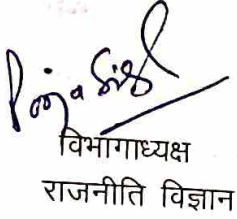 Pooja Singh
विभागाध्यक्ष
राजनीति विज्ञान